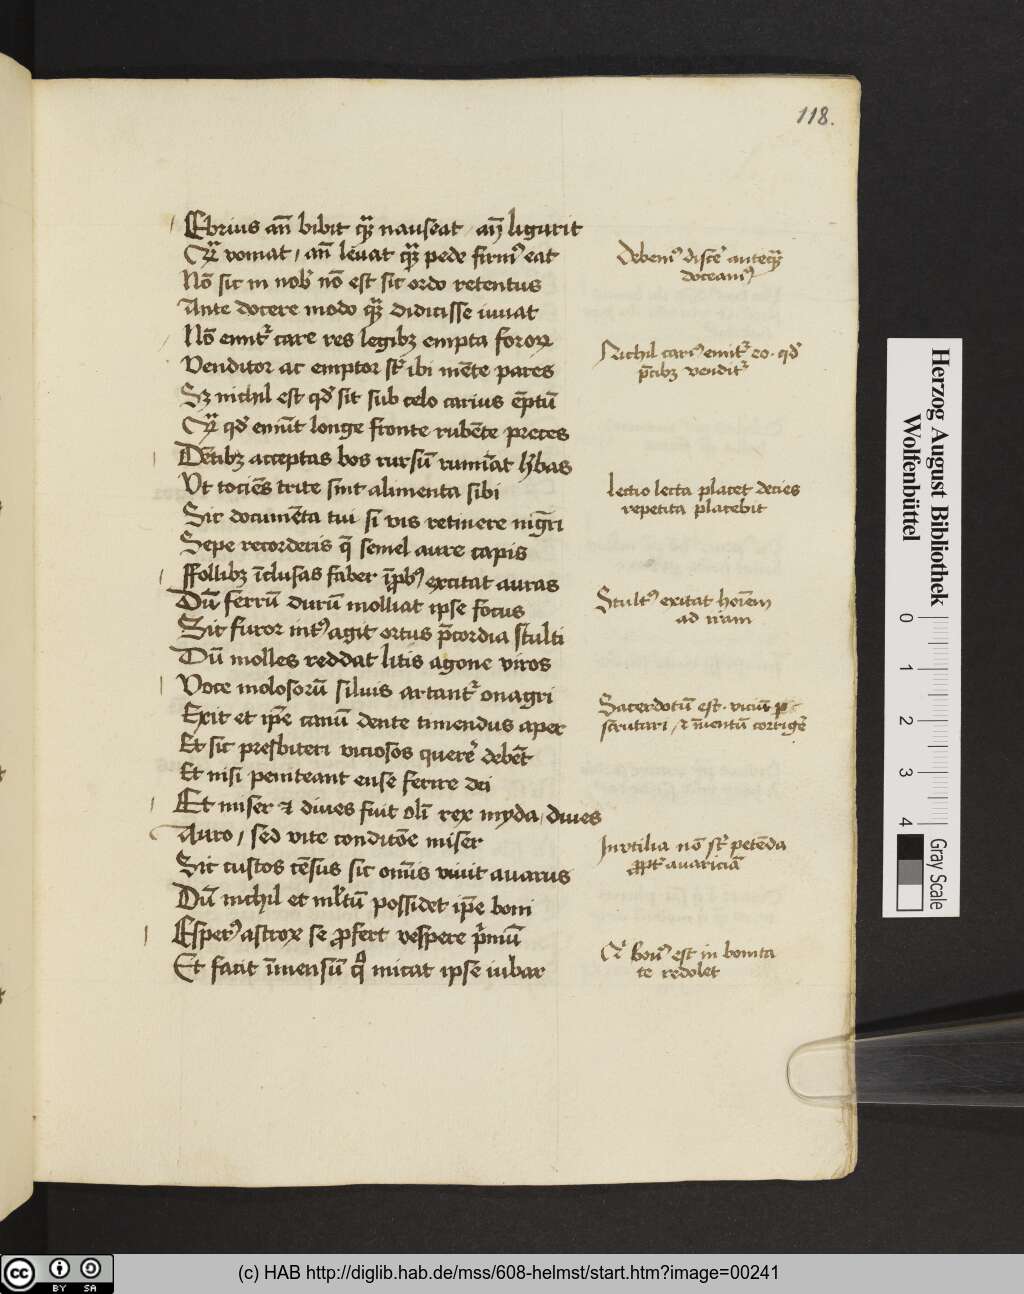 118.
Ebrius añ bibit qᷓꝫ nauseat / añ ligurit
Qᷓ vomat / añ leuat qᷓꝫ pede firmꝰ eat
Nō sic in nobꝭ nō est sic ordo retentus
Ante docere modo qᷓꝫ didicisse iuuat
Nō emitʳ care res legibꝫ empta foroꝝ
Venditor ac emptor sʳt ibi mēte pares
Sꝫ nichil est qđ sit sub celo carius ēptū
Qᷓ qđ emūt longe fronte rubēte preces
Dētibꝫ acceptas bos rursū rumīat hʳbas
Vt tociēs trite sint alimenta sibi
Sic documēta tui si vis retinere nigᷓri
Sepe recorderis q̄ semel aure capis
Ffollibꝫ īclusas faber īpͥbꝰ excitat auras
Dū ferrū durū molliat ipse focus
Sic furor intꝰ agit ortus p̄cordia stulti
Dū molles reddat litis agone viros
Voce molosorū siluis artantʳ onagri
Exit et ip̄e canū dente timendus aper
Et sic presbiteri viciosos querēʳ debēt
Et nisi peniteant ense ferire dei
Et miser ⁊ diues fuit olī rex myda / diues
Auro / sed vite conditōe miser
Sic custos cēsus sic om̄is viuit auarus
Dū nichil et mľtū possidet ip̄e boni
Esperꝰ astrox se ꝓfert vespere pͥmū
Et facit īmensū qͦ micat ipse iubar
Debemꝰ discēʳ anteqᷓꝫ
doceamꝰ
Nichil cariꝰ emitʳ eo · qđ
p̄cibꝫ venditʳ
Lectio lecta placet decies
repetita placebit
Stultꝰ exitat hoīem
ad iram
Sacerdotū est · viciū p
scrutari / ⁊ īuentū corrigēʳ
Inutilia nō sʳt petēda
ꝓptʳ auariciā
Qͥ bonꝰ est in bonita
te redolet
Herzog August Bibliothek
Wolfenbüttel
0 1 2 3 4
Gray Scale
cc BY SA
(c) HAB http://diglib.hab.de/mss/608-helmst/start.htm?image=00241